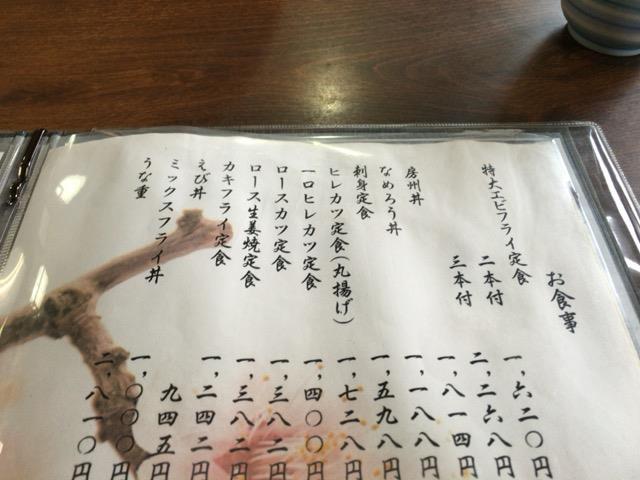 お食事
特大エビフライ定食
二本付 一、六二〇円
三本付 二、二六八円
房州丼 一、八一四円
なめろう丼 一、一八八円
刺身定食 一、五九八円
ヒレカツ定食(丸揚げ) 一、七二八円
一口ヒレカツ定食 一、四〇〇円
ロースカツ定食 一、三八二円
ロース生姜焼定食 一、三八二円
カキフライ定食 一、二四二円
えび丼 九四五円
ミックスフライ丼 一、〇〇〇円
うな重 二、八一〇円